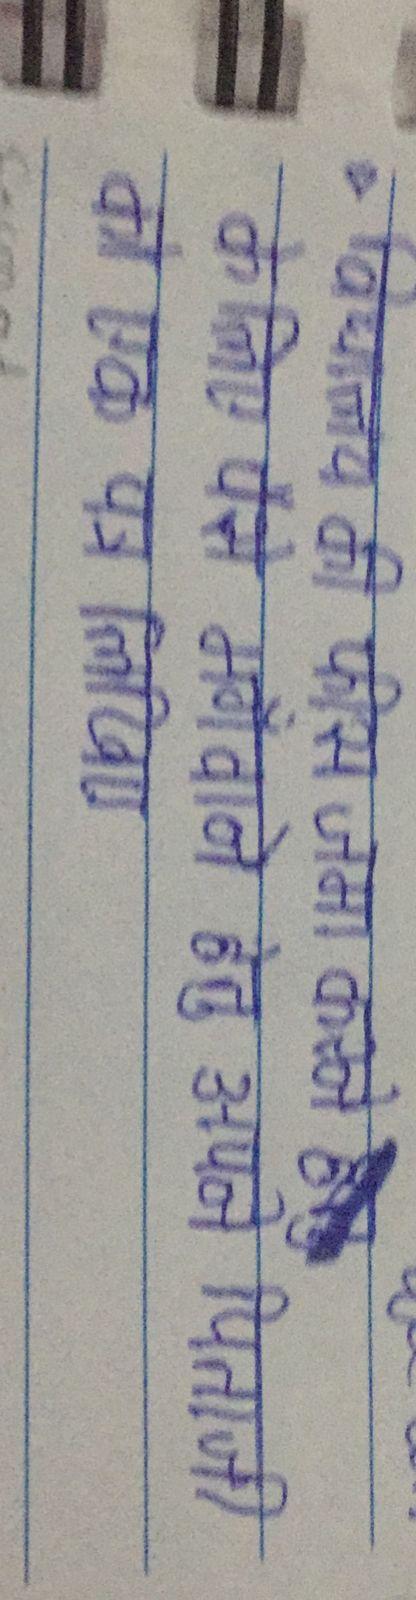 विधालय की फीस जमा करने
के लिए पैसे मगँवाने हेतु अपने पिताजी
को एक पत्र लिखिए